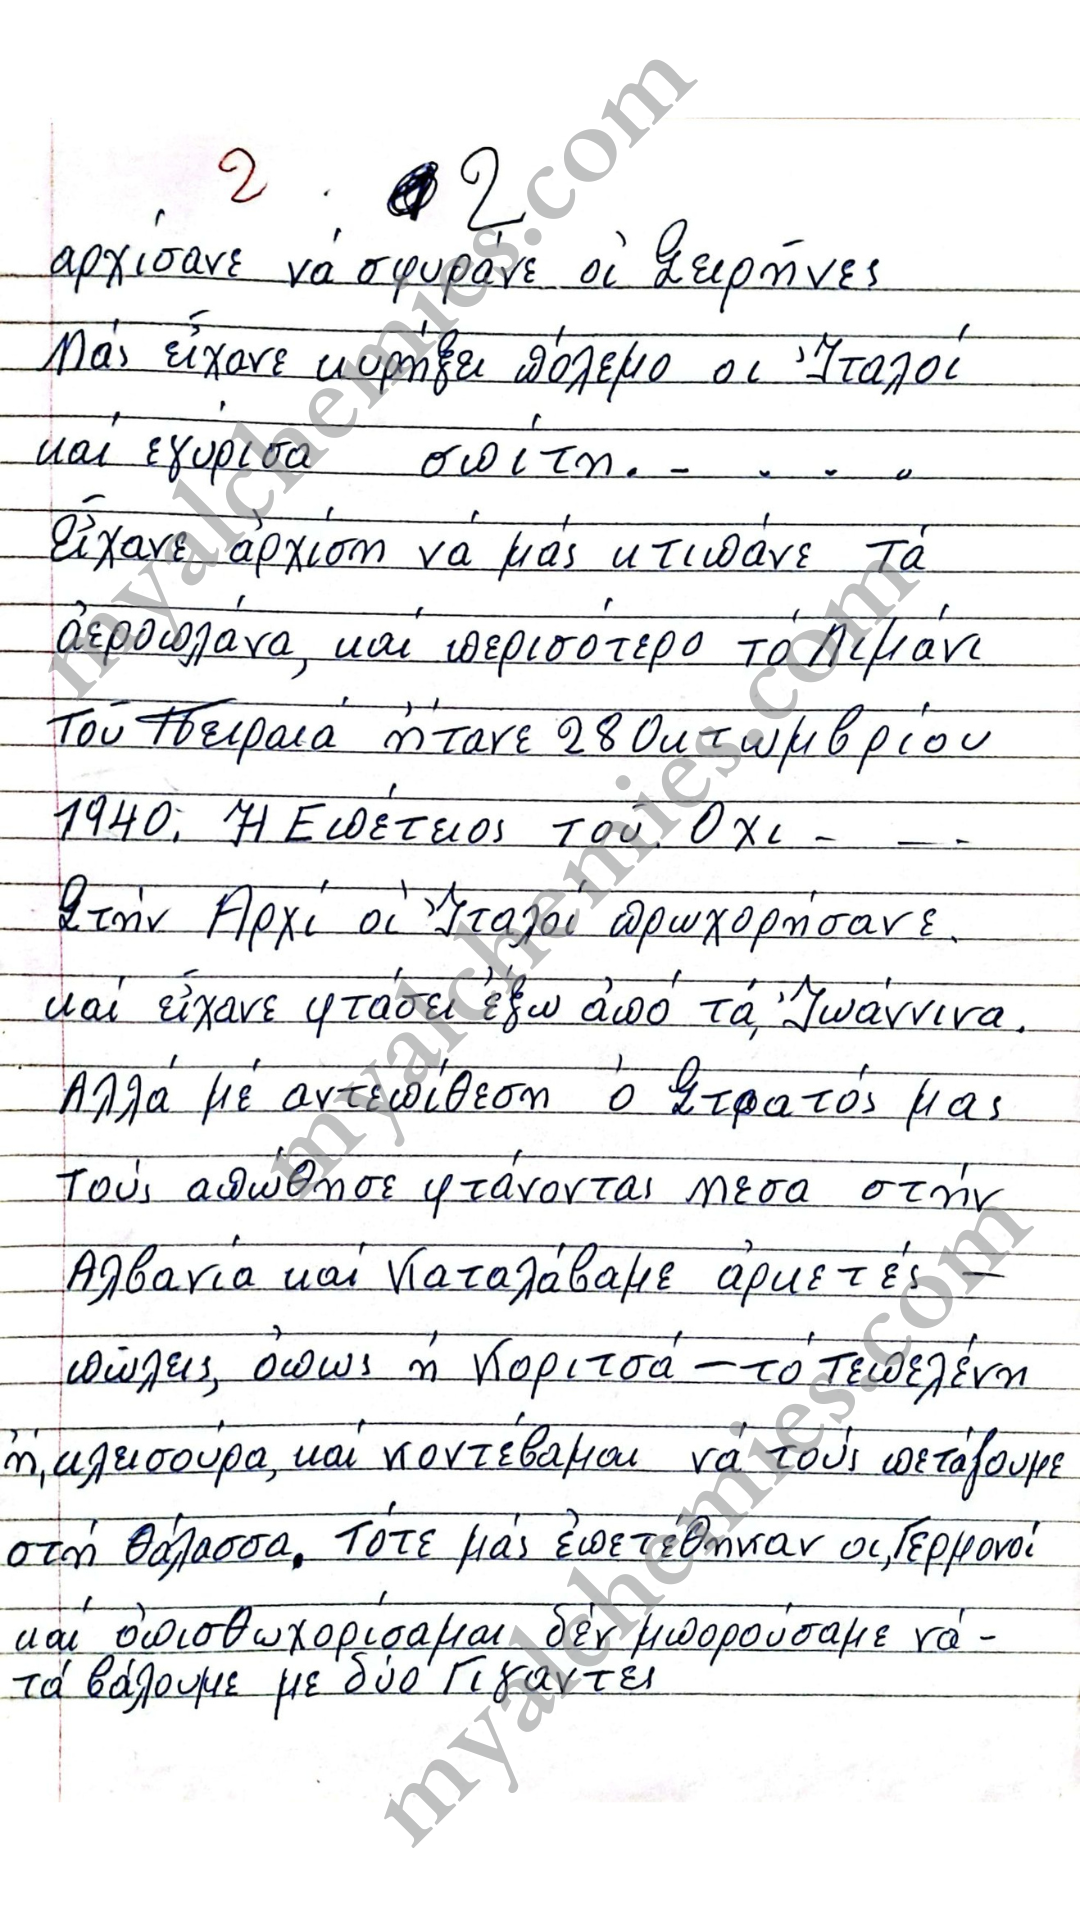 2 2
αρχίσανε νά σφυράνε οἱ Σειρῆνες
Μάς εἶχανε κυρήξει πόλεμο οι Ἰταλοί
καί εγύρισα σπίτη. - . . .
Εἶχανε ἀρχίση νά μάς κτιπάνε τά
ἀεροπλάνα, καί περισότερο τό Λιμάνι
Τοῦ Πειραιά ἠτανε 28 Οκτωμβρίου
1940. Ἡ Επέτειος τοῦ Οχι - - -.
Στήν Αρχί οἱ Ἰταλοί πρωχορήσανε.
καί εἶχανε φτάσει ἐξω ἀπό τά, Ἰωάννινα.
Αλλά μέ αντεπίθεση ὁ Στρατός μας
τούς απώθησε φτάνοντας μεσα στήν
Αλβανία καί Καταλάβαμε ἀρκετές -
πώλεις, ὀπως ἡ Κοριτσά - τό Τεπελένη
ἡ, κλεισούρα, καί κοντέβαμαι νά τούς πετάξουμε
στή θάλασσα. Τότε μάς ἐπετέθηκαν οι, Γερμονοί
καί ὀπισθωχορίσαμαι δέν μπορούσαμε νά -
τά βάλουμε με δύο Γίγαντες
myalchemies.com
myalchemies.com
myalchemies.com